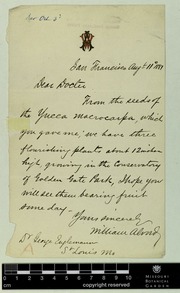 San Francisco Aug. 11th 1881
Dear Doctor
From the seeds of
the Yucca macrocarpa, which
you gave me, we have three
flourishing plants, about 12 inches
high, growing in the Conservatory
of Golden Gate Park. I hope you
will see them bearing fruit
some day.
Yours sincerely,
William Alvord
Dr George Engelmann
St Louis Mo.
MISSOURI
BOTANICAL
GARDEN